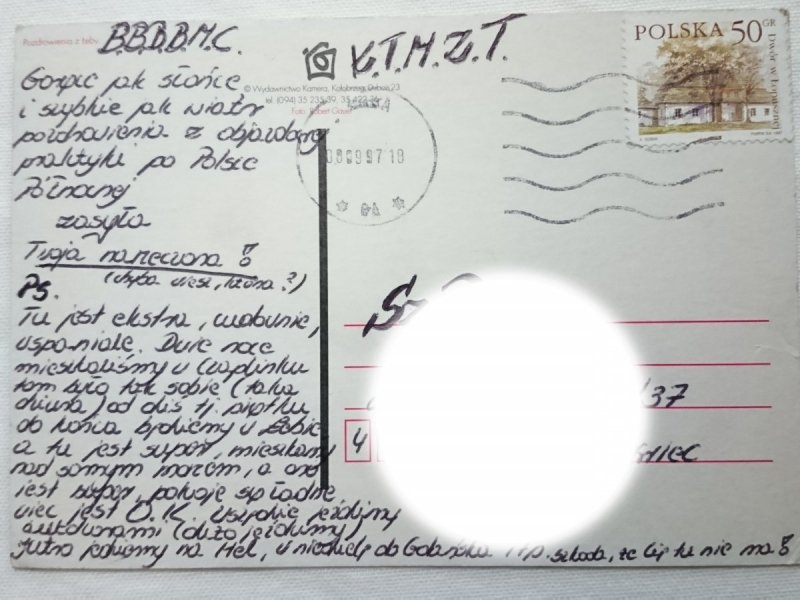 Pozdrowienia z Łeby
B.B.B.B.M.C.
K.T.M.Z.T.
POLSKA 50 GR
© Wydawnictwo Kamera, Kołobrzeg
tel. (094) 35 235 39, 35 427
Foto: Robert
97 18
Gorące jak słońce
i szybkie jak wiatr
pozdrowienia z objazdowej
praktyki po Polsce
Północnej
zasyła
Twoja narzeczona!
(chyba wiesz, która?)
PS.
Tu jest ekstra, cudownie,
wspaniale. Dwie noce
mieszkaliśmy w Czaplinku
tam było tak sobie (taka
dziura) od dziś tj. piątku
do końca będziemy w Łebie
a tu jest super, mieszkamy
nad samym morzem, a ono
jest super, pokoje są ładne
więc jest O.K. wszędzie jeździmy
autokarami (dużo jeździmy)
Jutro jedziemy na Hel, w niedzielę do Gdańska itp. szkoda, że Cię tu nie ma!
/37
4